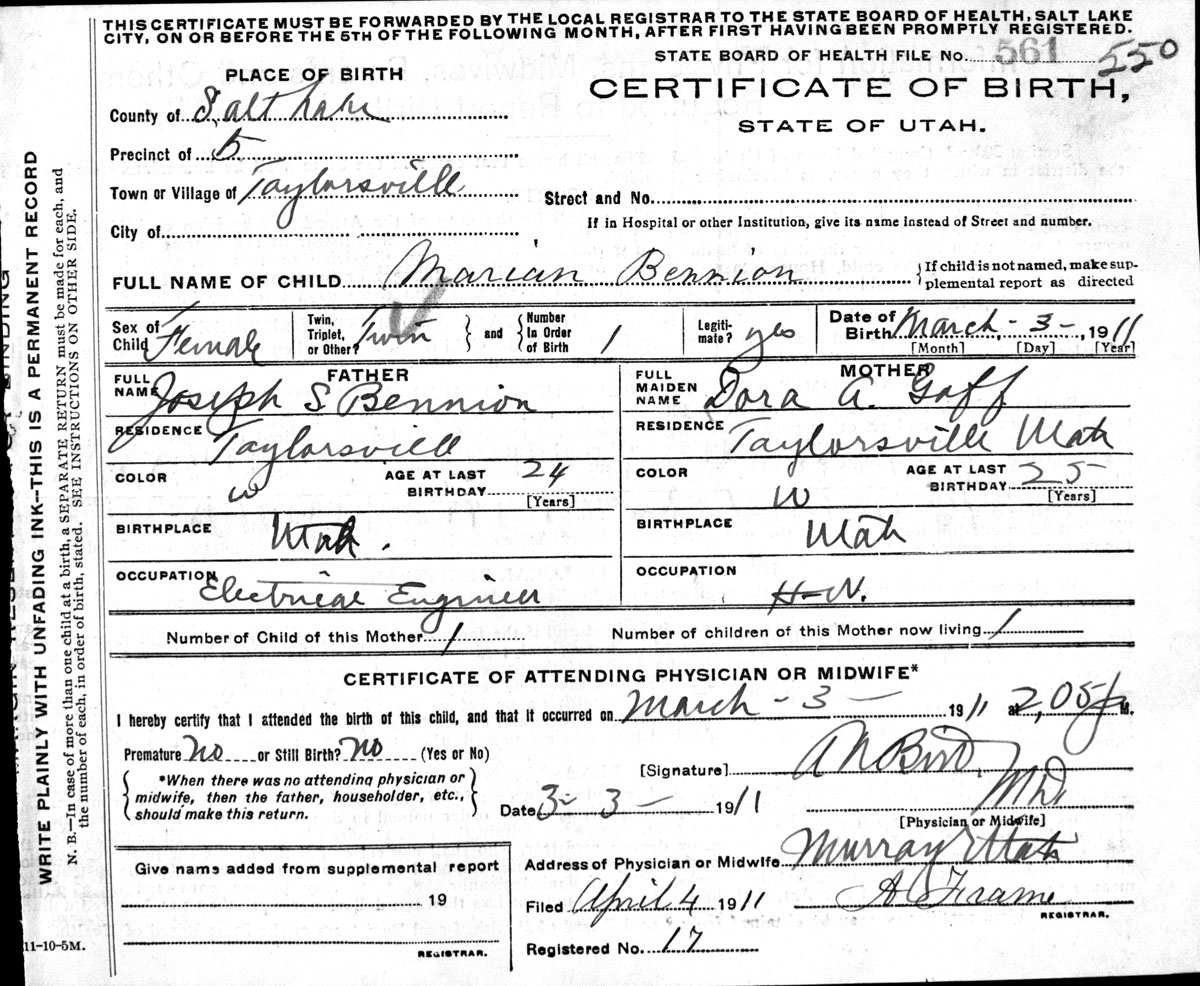 THIS CERTIFICATE MUST BE FORWARDED BY THE LOCAL REGISTRAR TO THE STATE BOARD OF HEALTH, SALT LAKE
CITY, ON OR BEFORE THE 5TH OF THE FOLLOWING MONTH, AFTER FIRST HAVING BEEN PROMPTLY REGISTERED.
STATE BOARD OF HEALTH FILE No. 561 550
PLACE OF BIRTH
CERTIFICATE OF BIRTH,
STATE OF UTAH.
County of Salt Lake
Precinct of 5
Town or Village of Taylorsville
Street and No.
If in Hospital or other Institution, give its name instead of Street and number.
City of
FULL NAME OF CHILD Marian Bennion
If child is not named, make sup-
plemental report as directed
Sex of Child Female
Twin, Triplet, or Other? Twin
and
Number In Order of Birth 1
Legiti-mate? yes
Date of Birth March - 3 -, 1911
[Month] [Day] [Year]
FATHER
FULL NAME Joseph S. Bennion
RESIDENCE Taylorsville
COLOR w
AGE AT LAST BIRTHDAY 24
[Years]
BIRTHPLACE Utah.
OCCUPATION Electrical Engineer
MOTHER
FULL MAIDEN NAME Dora A. Goff
RESIDENCE Taylorsville Utah
COLOR W
AGE AT LAST BIRTHDAY 25
[Years]
BIRTHPLACE Utah
OCCUPATION H-W.
Number of Child of this Mother 1
Number of children of this Mother now living 1
CERTIFICATE OF ATTENDING PHYSICIAN OR MIDWIFE*
I hereby certify that I attended the birth of this child, and that it occurred on March - 3 - 1911 at 2,05 M.
Premature No or Still Birth? No (Yes or No)
*When there was no attending physician or
midwife, then the father, householder, etc.,
should make this return.
[Signature]
MD
Date 3- 3- 1911
[Physician or Midwife]
Address of Physician or Midwife Murray Utah
Give name added from supplemental report
19
REGISTRAR.
Filed April 4 1911
A Frame
REGISTRAR.
Registered No. 17
11-10-5M.
WRITE PLAINLY WITH UNFADING INK—THIS IS A PERMANENT RECORD
N. B.—In case of more than one child at a birth, a SEPARATE RETURN must be made for each, and
the number of each, in order of birth, stated. SEE INSTRUCTIONS ON OTHER SIDE.